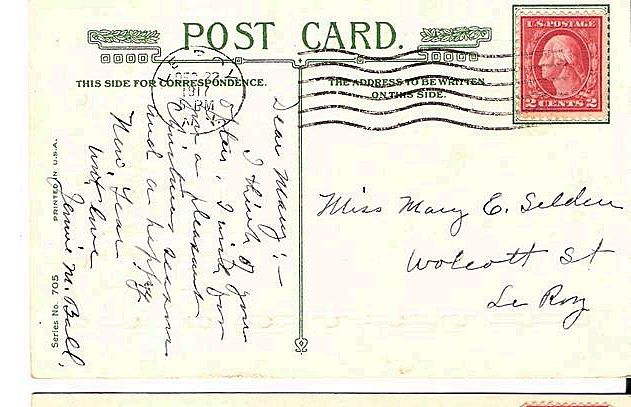 POST CARD.
THIS SIDE FOR CORRESPONDENCE.
THE ADDRESS TO BE WRITTEN
ON THIS SIDE.
U.S. POSTAGE
2 CENTS 2
DEC 22
1917
PM
Dear Mary:-
I think of you
often. I wish you
a pleasant
Christmas season
and a happy
New Year
with love
M. Ball.
Miss Mary E. Selden
Wolcott St
Le Roy
PRINTED IN U.S.A.
Series No. 705